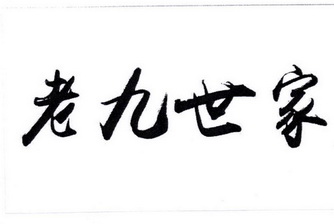 老九世家